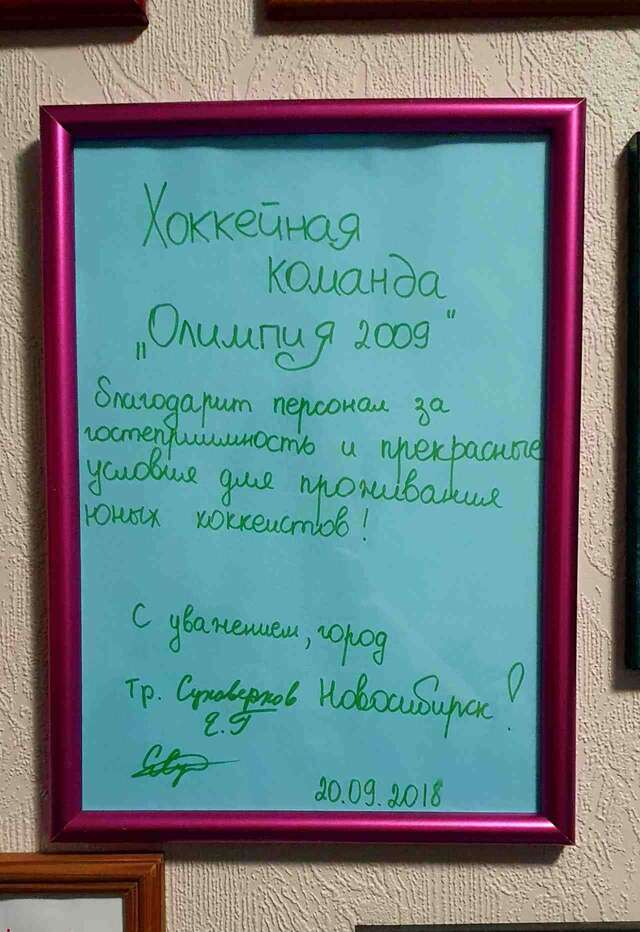 Хоккейная
команда
„Олимпия 2009"
благодарит персонал за
гостеприимность и прекрасные
условия для проживания
юных хоккеистов!
С уважением, город
тр. Суховерхов Новосибирск!
Е.Г
20.09.2018